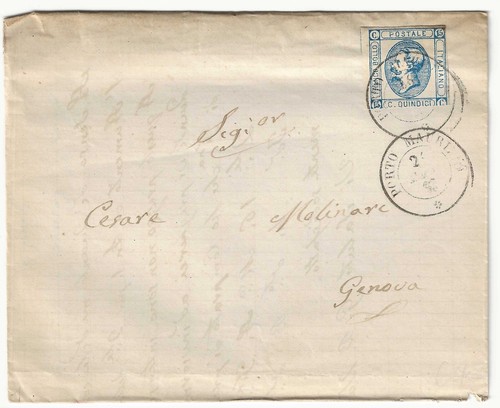 C POSTALE 15
FRANCO BOLLO
ITALIANO
15 C. QUINDICI C
PORTO MAURIZIO
2
Segior
Cesare Molinare
Genova